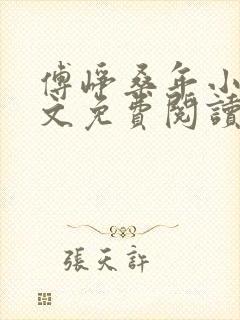 傅崢桑年小
文免費閱讀
張天許